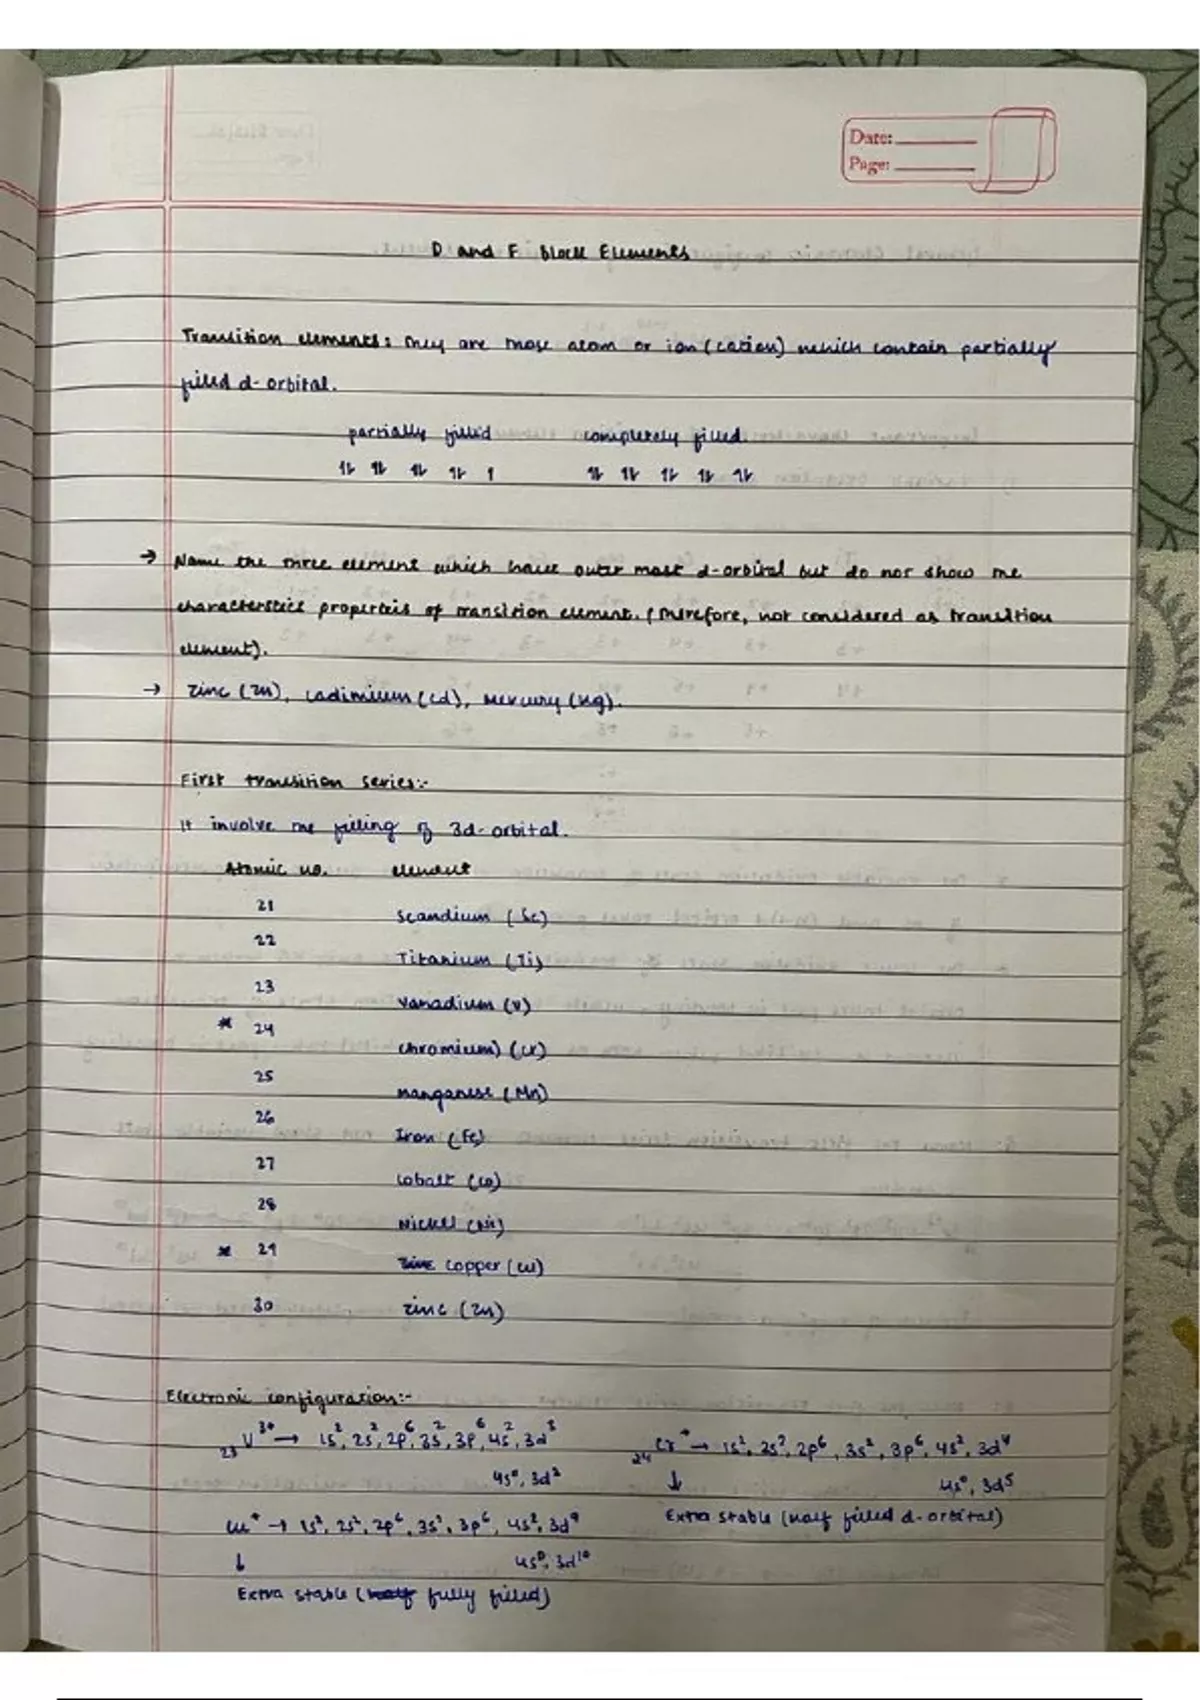 Date:
Page:
D and F block Elements
Transition elements: They are those atom or ion (cation) which contain partially
filled d-orbital.
partially filled completely filled.
⥮ ⥮ ⥮ ⥮ ↿ ⥮ ⥮ ⥮ ⥮ ⥮
→ Name the three element which have outer most d-orbital but do not show the
characterstics properteis of transition element. (Therefore, not considered as transition
element).
→ Zinc (Zn), Cadimium (Cd), Mercury (Hg).
First transition series:-
It involve the filling of 3d-orbital.
Atomic no. element
21 Scandium (Sc)
22 Titanium (Ti)
23 Vanadium (V)
* 24 Chromium) (Cr)
25 Manganese (Mn)
26 Iron (Fe)
27 Cobalt (Co)
28 Nickel (Ni)
* 29 Zinc Copper (Cu)
30 Zinc (Zn)
Electronic configuration:-
₂₃V³⁺ → 1s², 2s², 2p⁶, 3s², 3p⁶, 4s², 3d³ ₂₄Cr⁺ → 1s², 2s², 2p⁶, 3s², 3p⁶, 4s², 3d⁴
4s⁰, 3d² ↓ 4s⁰, 3d⁵
Cu⁺ → 1s², 2s², 2p⁶, 3s², 3p⁶, 4s², 3d⁹ Extra stable (half filled d-orbital)
↓ 4s⁰, 3d¹⁰
Extra stable (half fully filled)